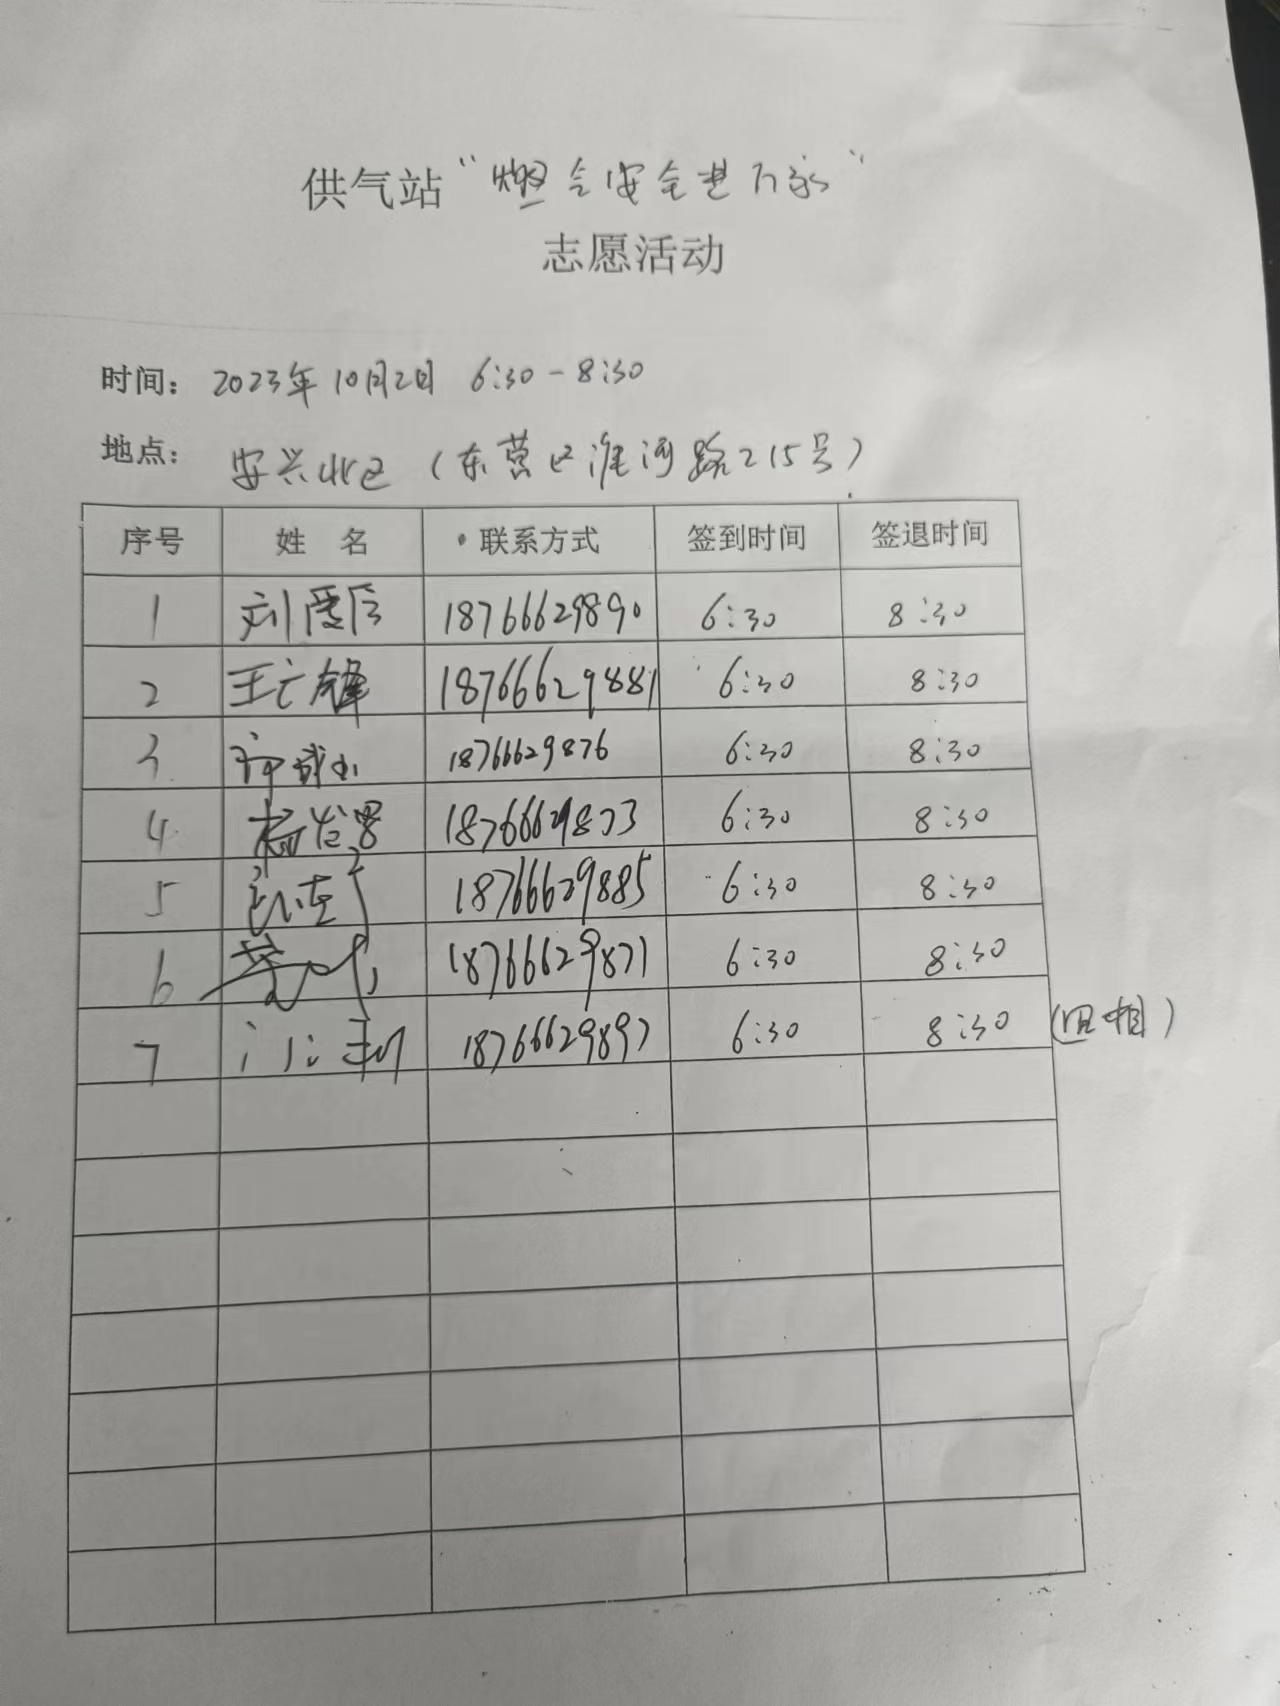 供气站“燃气安全进万家”
志愿活动
时间： 2023年10月2日 6:30-8:30
地点： 安兴北区（东营区淮河路215号）
序号 姓 名 联系方式 签到时间 签退时间
1 刘 18766629890 6:30 8:30
2 王 锋 18766629881 6:30 8:30
3 18766629876 6:30 8:30
4 杨 18766629873 6:30 8:30
5 18766629885 6:30 8:30
6 18766629871 6:30 8:30
7 18766629897 6:30 8:30 (照相)